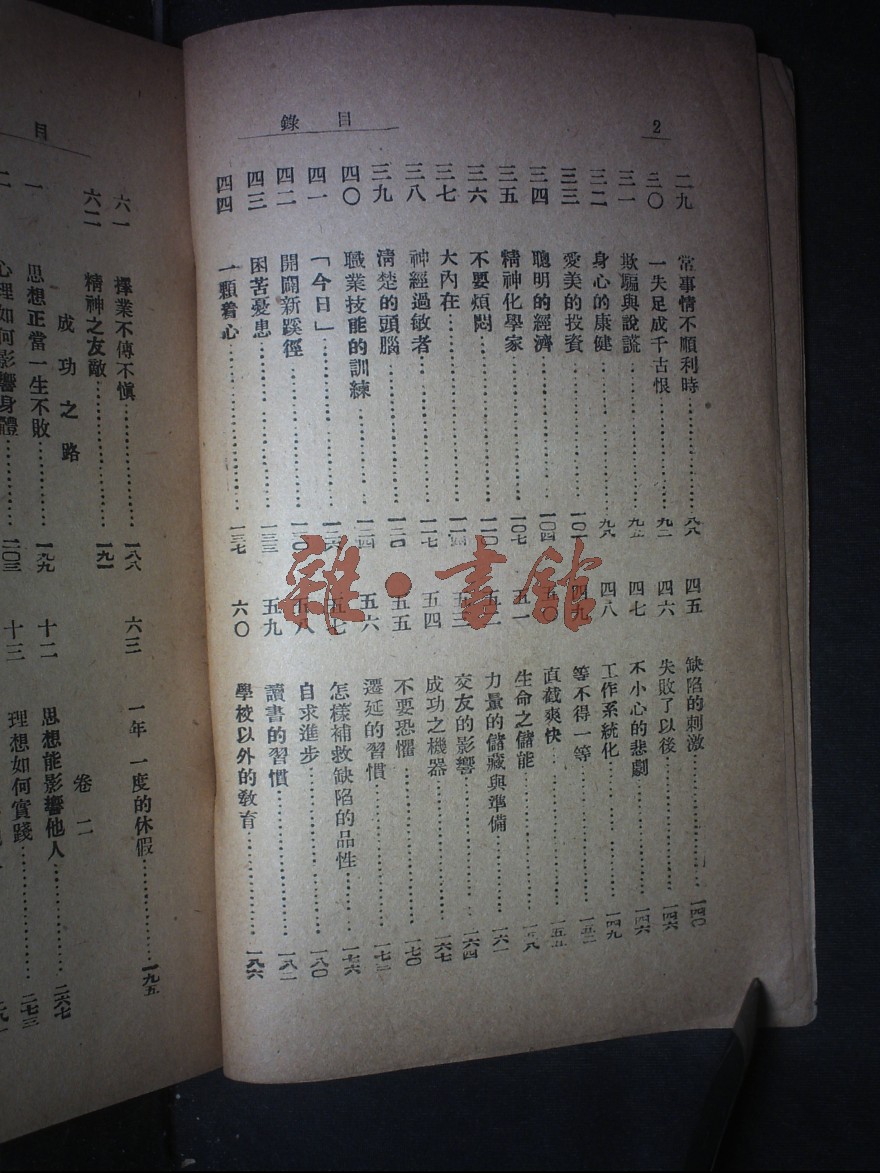 2
目錄
二九 常事情不順利時 八八
三〇 一失足成千古恨 九二
三一 欺騙與說謊
三二 身心的康健 九八
三三 愛美的投資 一〇一
三四 聰明的經濟 一〇四
三五 精神化學家 一〇七
三六 不要煩悶 一一〇
三七 大內在 一一四
三八 神經過敏者 一一七
三九 清楚的頭腦 一二〇
四〇 職業技能的訓練 一二四
四一 「今日」
四二 開闢新蹊徑
四三 困苦憂患 一三三
四四 一顆着心 一三七
四五 缺陷的刺激 一四〇
四六 失敗了以後
四七 不小心的悲劇 一四六
四八 工作系統化 一四九
四九 等不得一等 一五二
五〇 直截爽快 一五五
五一 生命之儲能 一五八
五二 力量的儲藏與準備 一六一
五三 交友的影響 一六四
五四 成功之機器 一六七
五五 不要恐懼 一七〇
五六 遷延的習慣 一七三
五七 怎樣補救缺陷的品性 一七六
五八 自求進步 一八〇
五九 讀書的習慣 一八二
六〇 學校以外的教育 一八六
目
六一 擇業不傳不愼 一八八
六二 精神之友敵 一九一
六三 一年一度的休假 一九五
成功之路
卷二
一 思想正當一生不敗 一九九
二 心理如何影響身體 二〇三
十二 思想能影響他人 二六七
十三 理想如何實踐 二七三
雜·書館